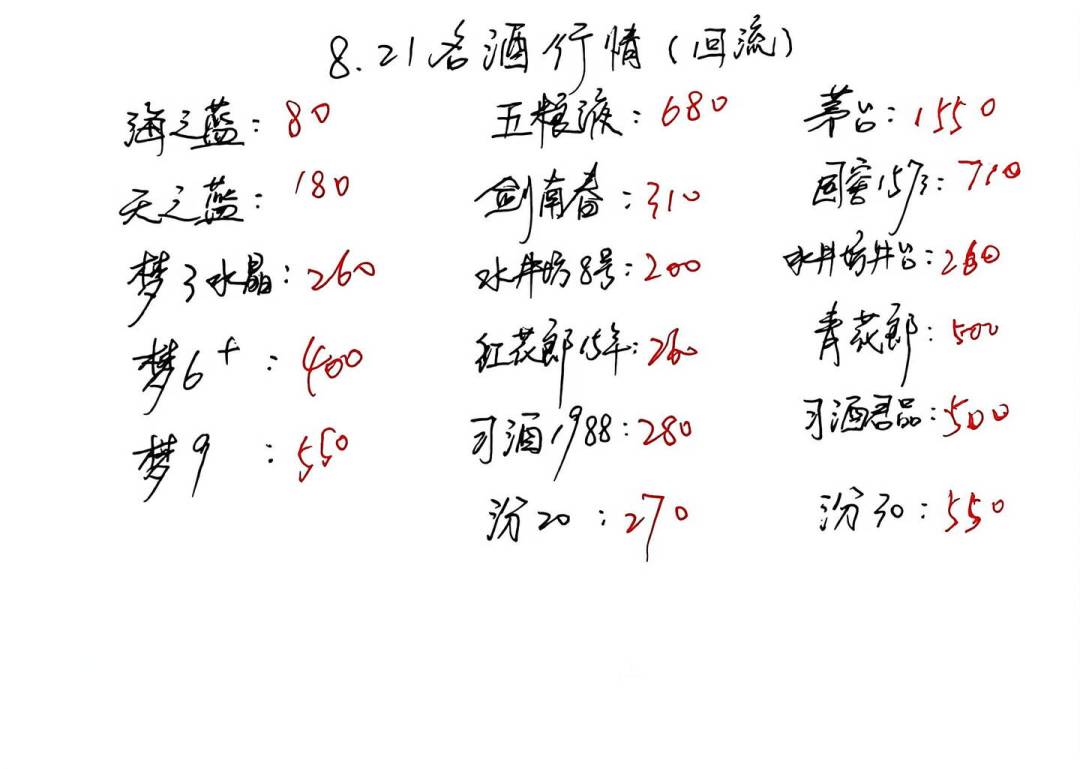 8.21名酒行情(回流)
海之蓝:80 五粮液:680 茅台:1550
天之蓝:180 剑南春:310 国窖1573:710
梦3水晶:260 水井坊8号:200 水井坊井台:260
梦6+:400 红花郎15年:260 青花郎:500
梦9:550 习酒1988:280 习酒君品:500
汾20:270 汾30:550